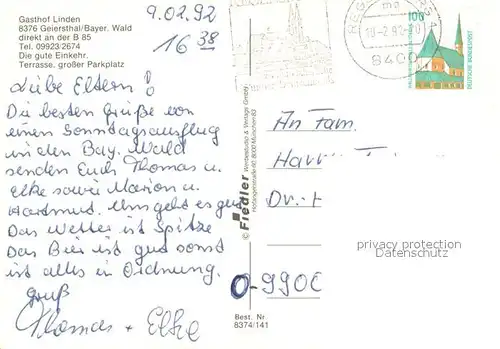 Gasthof Linden
8376 Geiersthal/Bayer. Wald
direkt an der B 85
Tel. 09923/2674
Die gute Einkehr.
Terrasse. großer Parkplatz
9.02.92
16 38
Liebe Eltern!
Die besten Grüße von
einen Sonntagsausflug
in den Bay. Wald
senden Euch Thomas u.
Elke sowie Marion u.
Hartmut. Uns geht es gut
Das Wetter ist Spitze
Das Bier ist gut sonst
ist alles in Ordnung.
Gruß
Thomas + Elke
© Fiedler Werbestudio & Verlags GmbH
8000 München 83
Best. Nr.
8374/141
REG
8400
100
DEUTSCHE BUNDESPOST
An Fam.
Har
Dr.
O-990
privacy protection
Datenschutz